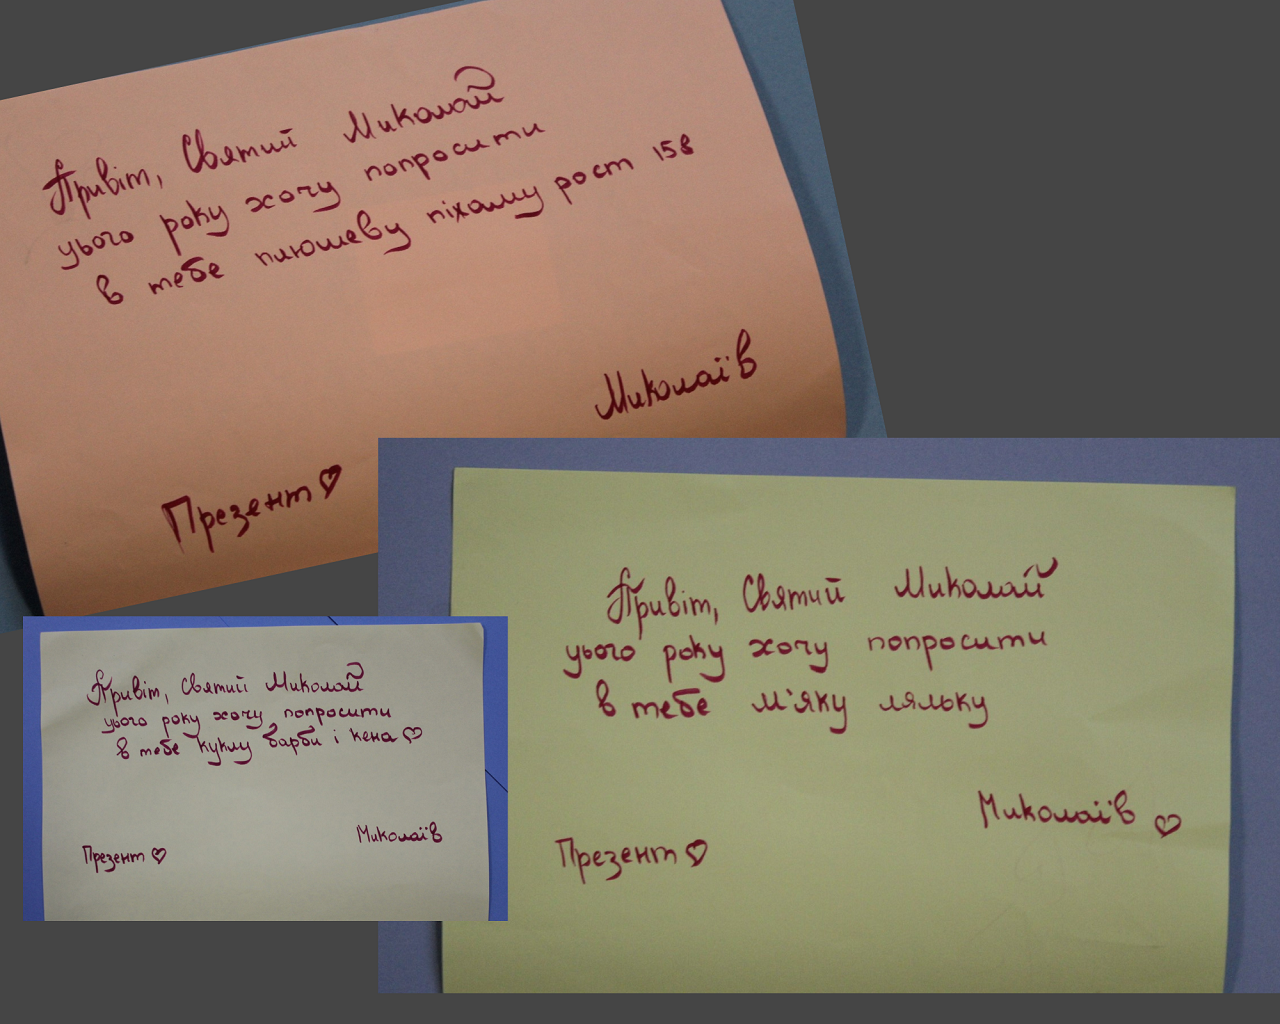 Привіт, Святий Миколай
цього року хочу попросити
в тебе плюшеву піжаму рост 158
Миколаїв
Презент♡
Привіт, Святий Миколай
цього року хочу попросити
в тебе куклу барби і кена♡
Миколаїв
Презент♡
Привіт, Святий Миколай
цього року хочу попросити
в тебе м'яку ляльку
Миколаїв ♡
Презент♡